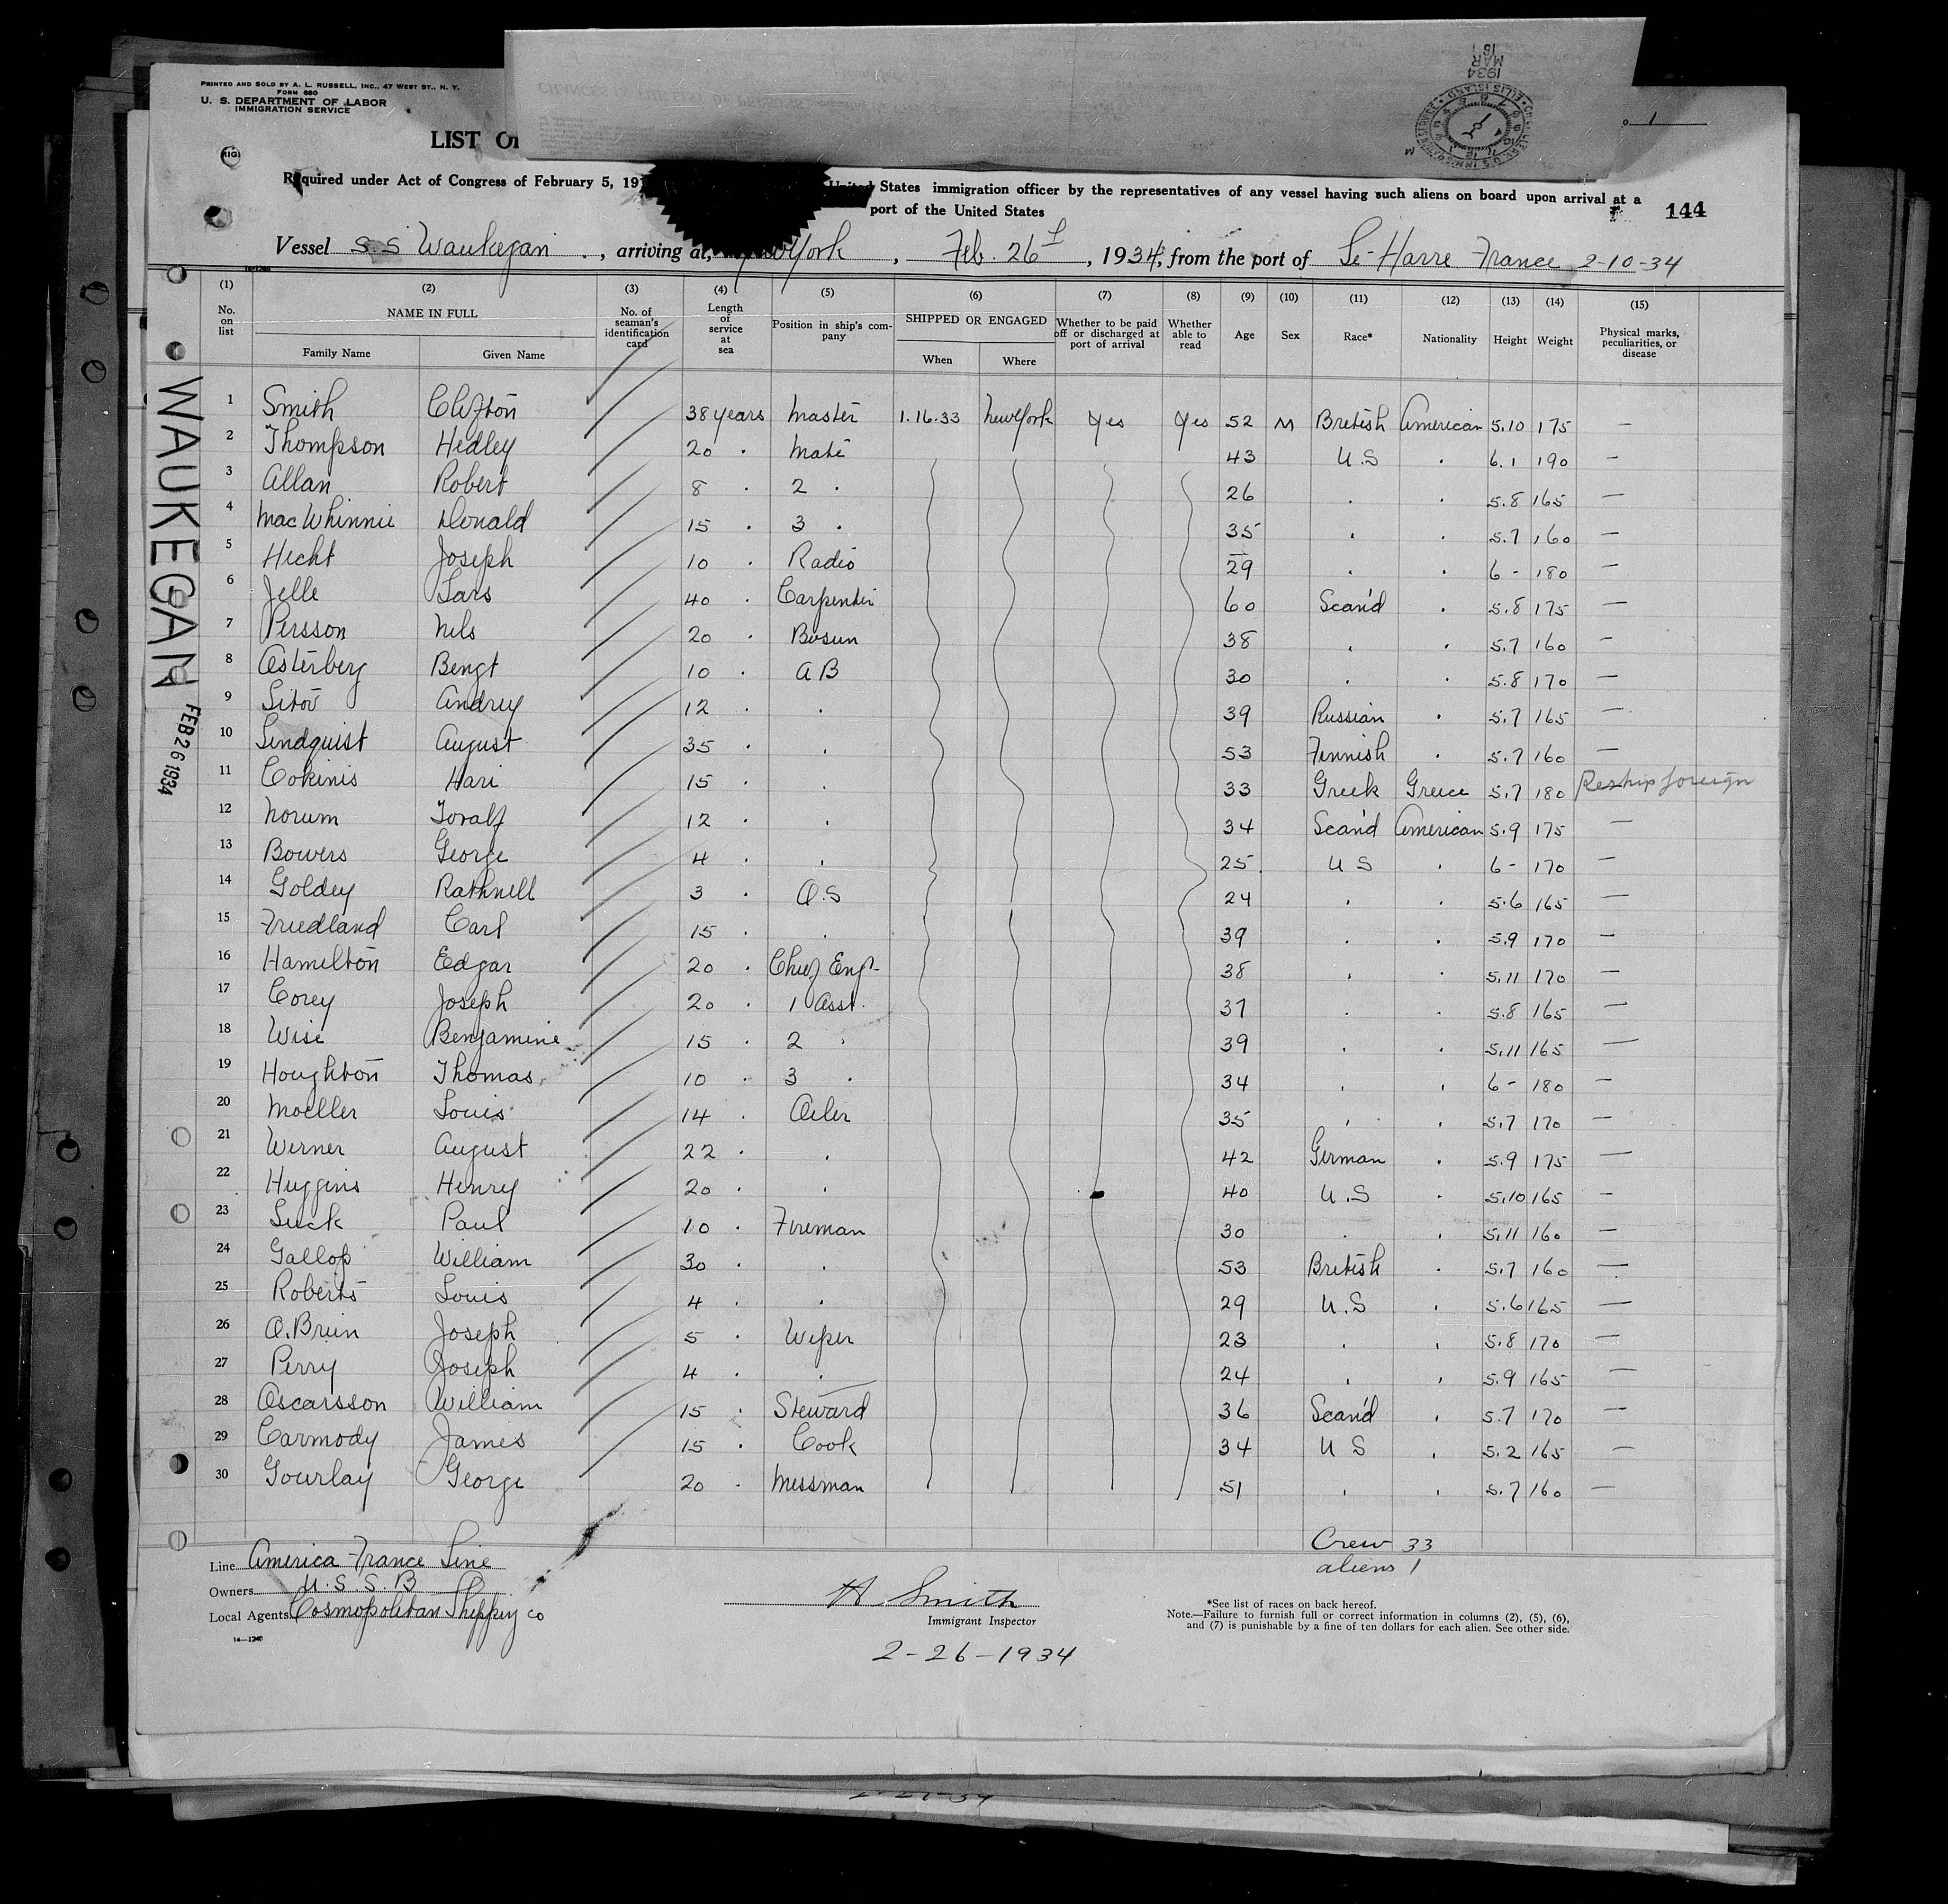 PRINTED AND SOLD BY A. L. RUSSELL, INC., 47 WEST ST., N. Y.
FORM 680
U. S. DEPARTMENT OF LABOR
IMMIGRATION SERVICE
1934
MAR
ELLIS ISLAND
1
LIST OF
Required under Act of Congress of February 5, 191 United States immigration officer by the representatives of any vessel having such aliens on board upon arrival at a
port of the United States
144
Vessel S.S Waukegan, arriving at, New York, Feb. 26th, 1934, from the port of Le-Havre France 2-10-34
(1) (2) (3) (4) (5) (6) (7) (8) (9) (10) (11) (12) (13) (14) (15)
No. on list NAME IN FULL No. of seaman's identification card Length of service at sea Position in ship's company SHIPPED OR ENGAGED Whether to be paid off or discharged at port of arrival Whether able to read Age Sex Race* Nationality Height Weight Physical marks, peculiarities, or disease
Family Name Given Name When Where
WAUKEGAN FEB 26 1934
1 Smith Clifton 38 years Master 1.16.33 New York Yes Yes 52 M British American 5.10 175 —
2 Thompson Hedley 20 . Mate 43 U.S . 6.1 190 —
3 Allan Robert 8 . 2 . 26 . . 5.8 165 —
4 MacWhinnie Donald 15 . 3 . 35 . . 5.7 160 —
5 Hecht Joseph 10 . Radio 29 . . 6 - 180 —
6 Jelle Lars 40 . Carpenter 60 Scan'd . 5.8 175 —
7 Persson Nils 20 . Bosun 38 . . 5.7 160 —
8 Osterberg Bengt 10 . A B 30 . . 5.8 170 —
9 Sitov Andrey 12 . . 39 Russian . 5.7 165 —
10 Lindquist August 35 . . 53 Finnish . 5.7 160 —
11 Cokinis Hari 15 . . 33 Greek Greece 5.7 180 Reship foreign
12 Norum Toralf 12 . . 34 Scan'd American 5.9 175 —
13 Bowers George 4 . . 25 U S . 6 - 170 —
14 Goldey Rathnell 3 . O.S 24 . . 5.6 165 —
15 Friedland Carl 15 . . 39 . . 5.9 170 —
16 Hamilton Edgar 20 . Chief Engr. 38 . . 5.11 170 —
17 Corey Joseph 20 . 1 Asst. 37 . . 5.8 165 —
18 Wise Benjamine 15 . 2 . 39 . . 5.11 165 —
19 Houghton Thomas 10 . 3 . 34 . . 6 - 180 —
20 Moeller Louis 14 . Oiler 35 . . 5.7 170 —
21 Werner August 22 . . 42 German . 5.9 175 —
22 Huggins Henry 20 . . 40 U.S . 5.10 165 —
23 Luck Paul 10 . Fireman 30 . . 5.11 160 —
24 Gallop William 30 . . 53 British . 5.7 160 —
25 Roberts Louis 4 . . 29 U.S . 5.6 165 —
26 O.Brien Joseph 5 . Wiper 23 . . 5.8 170 —
27 Perry Joseph 4 . . 24 . . 5.9 165 —
28 Oscarsson William 15 . Steward 36 Scan'd . 5.7 170 —
29 Carmody James 15 . Cook 34 U S . 5.2 165 —
30 Gourlay George 20 . Messman 51 . . 5.7 160 —
Crew 33
aliens 1
Line America-France Line
Owners U.S.S.B
Local Agents Cosmopolitan Shipping Co
14—1240
H Smith
Immigrant Inspector
2-26-1934
*See list of races on back hereof.
Note.—Failure to furnish full or correct information in columns (2), (5), (6),
and (7) is punishable by a fine of ten dollars for each alien. See other side.